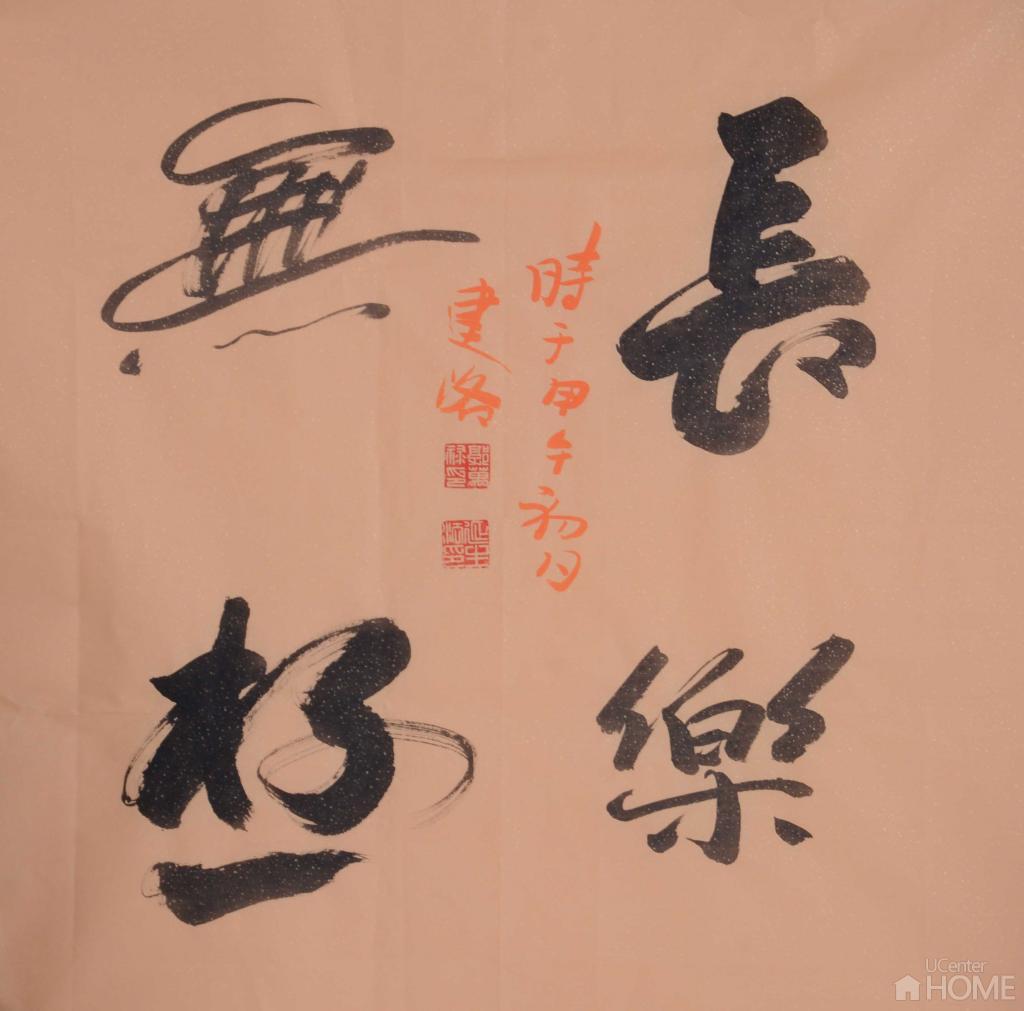 長樂
無極
時于甲午初月
建洛
UCenter
HOME